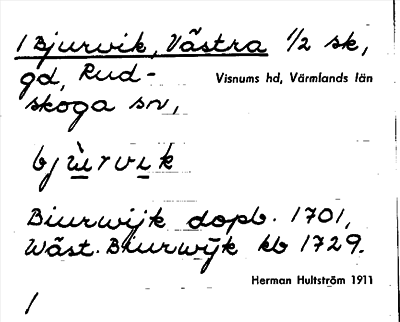 1 Bjurvik, Västra 1/2 sk,
gd, Rud-
skoga sn,
Visnums hd, Värmlands län
bjùrvik
Biurwijk dopb. 1701,
Wäst. Biurwÿk kb 1729.
Herman Hultström 1911
/